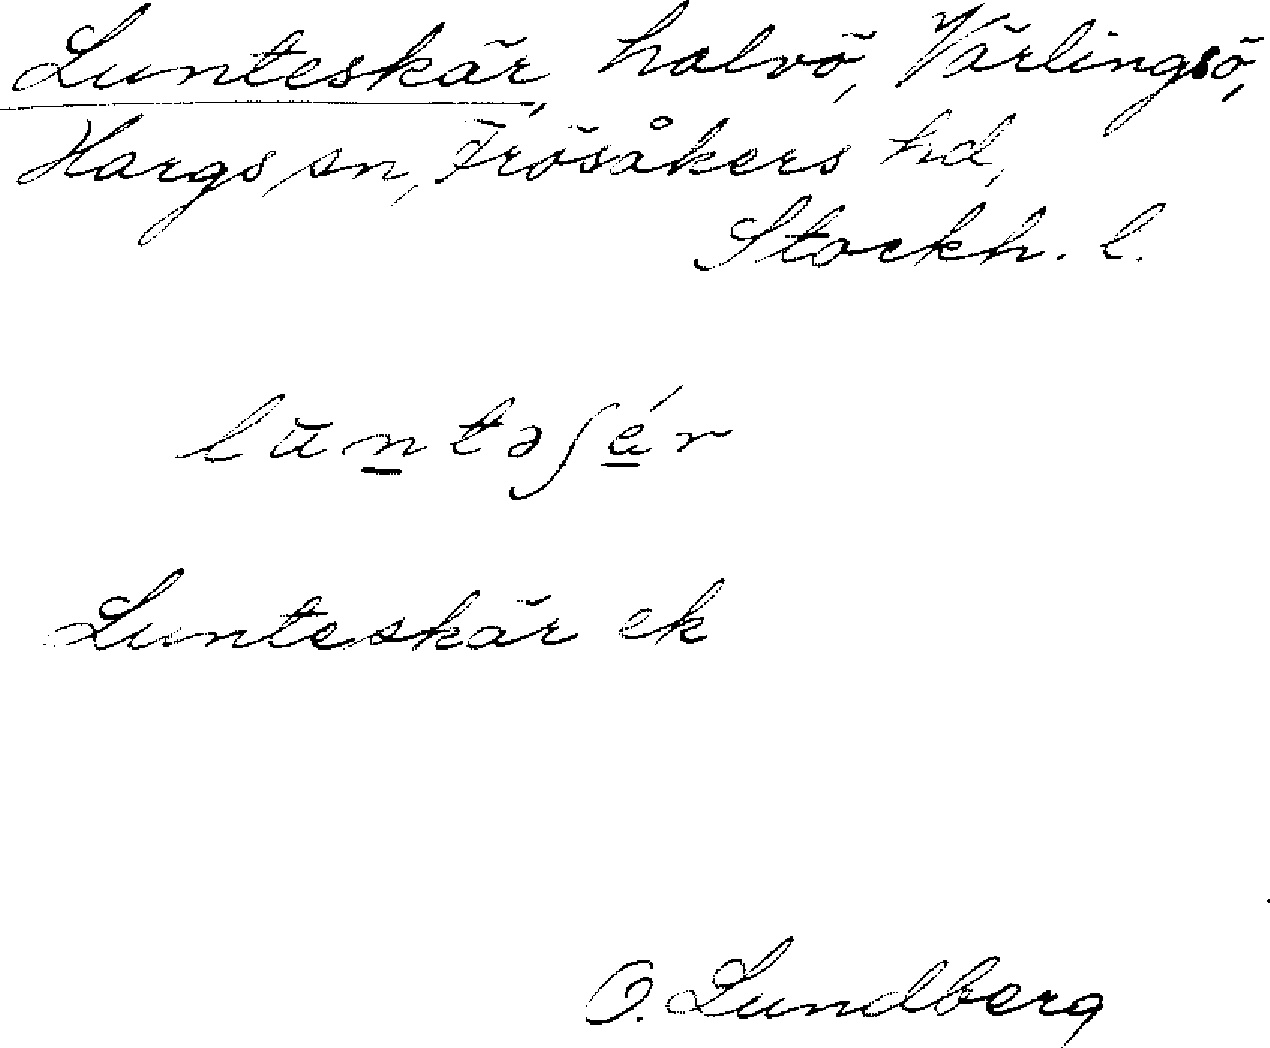 Lunteskär, halvö, Värlingsö,
Hargs sn, Frösåkers hd,
Stockh. l.
Lunteskär ek
O. Lundberg